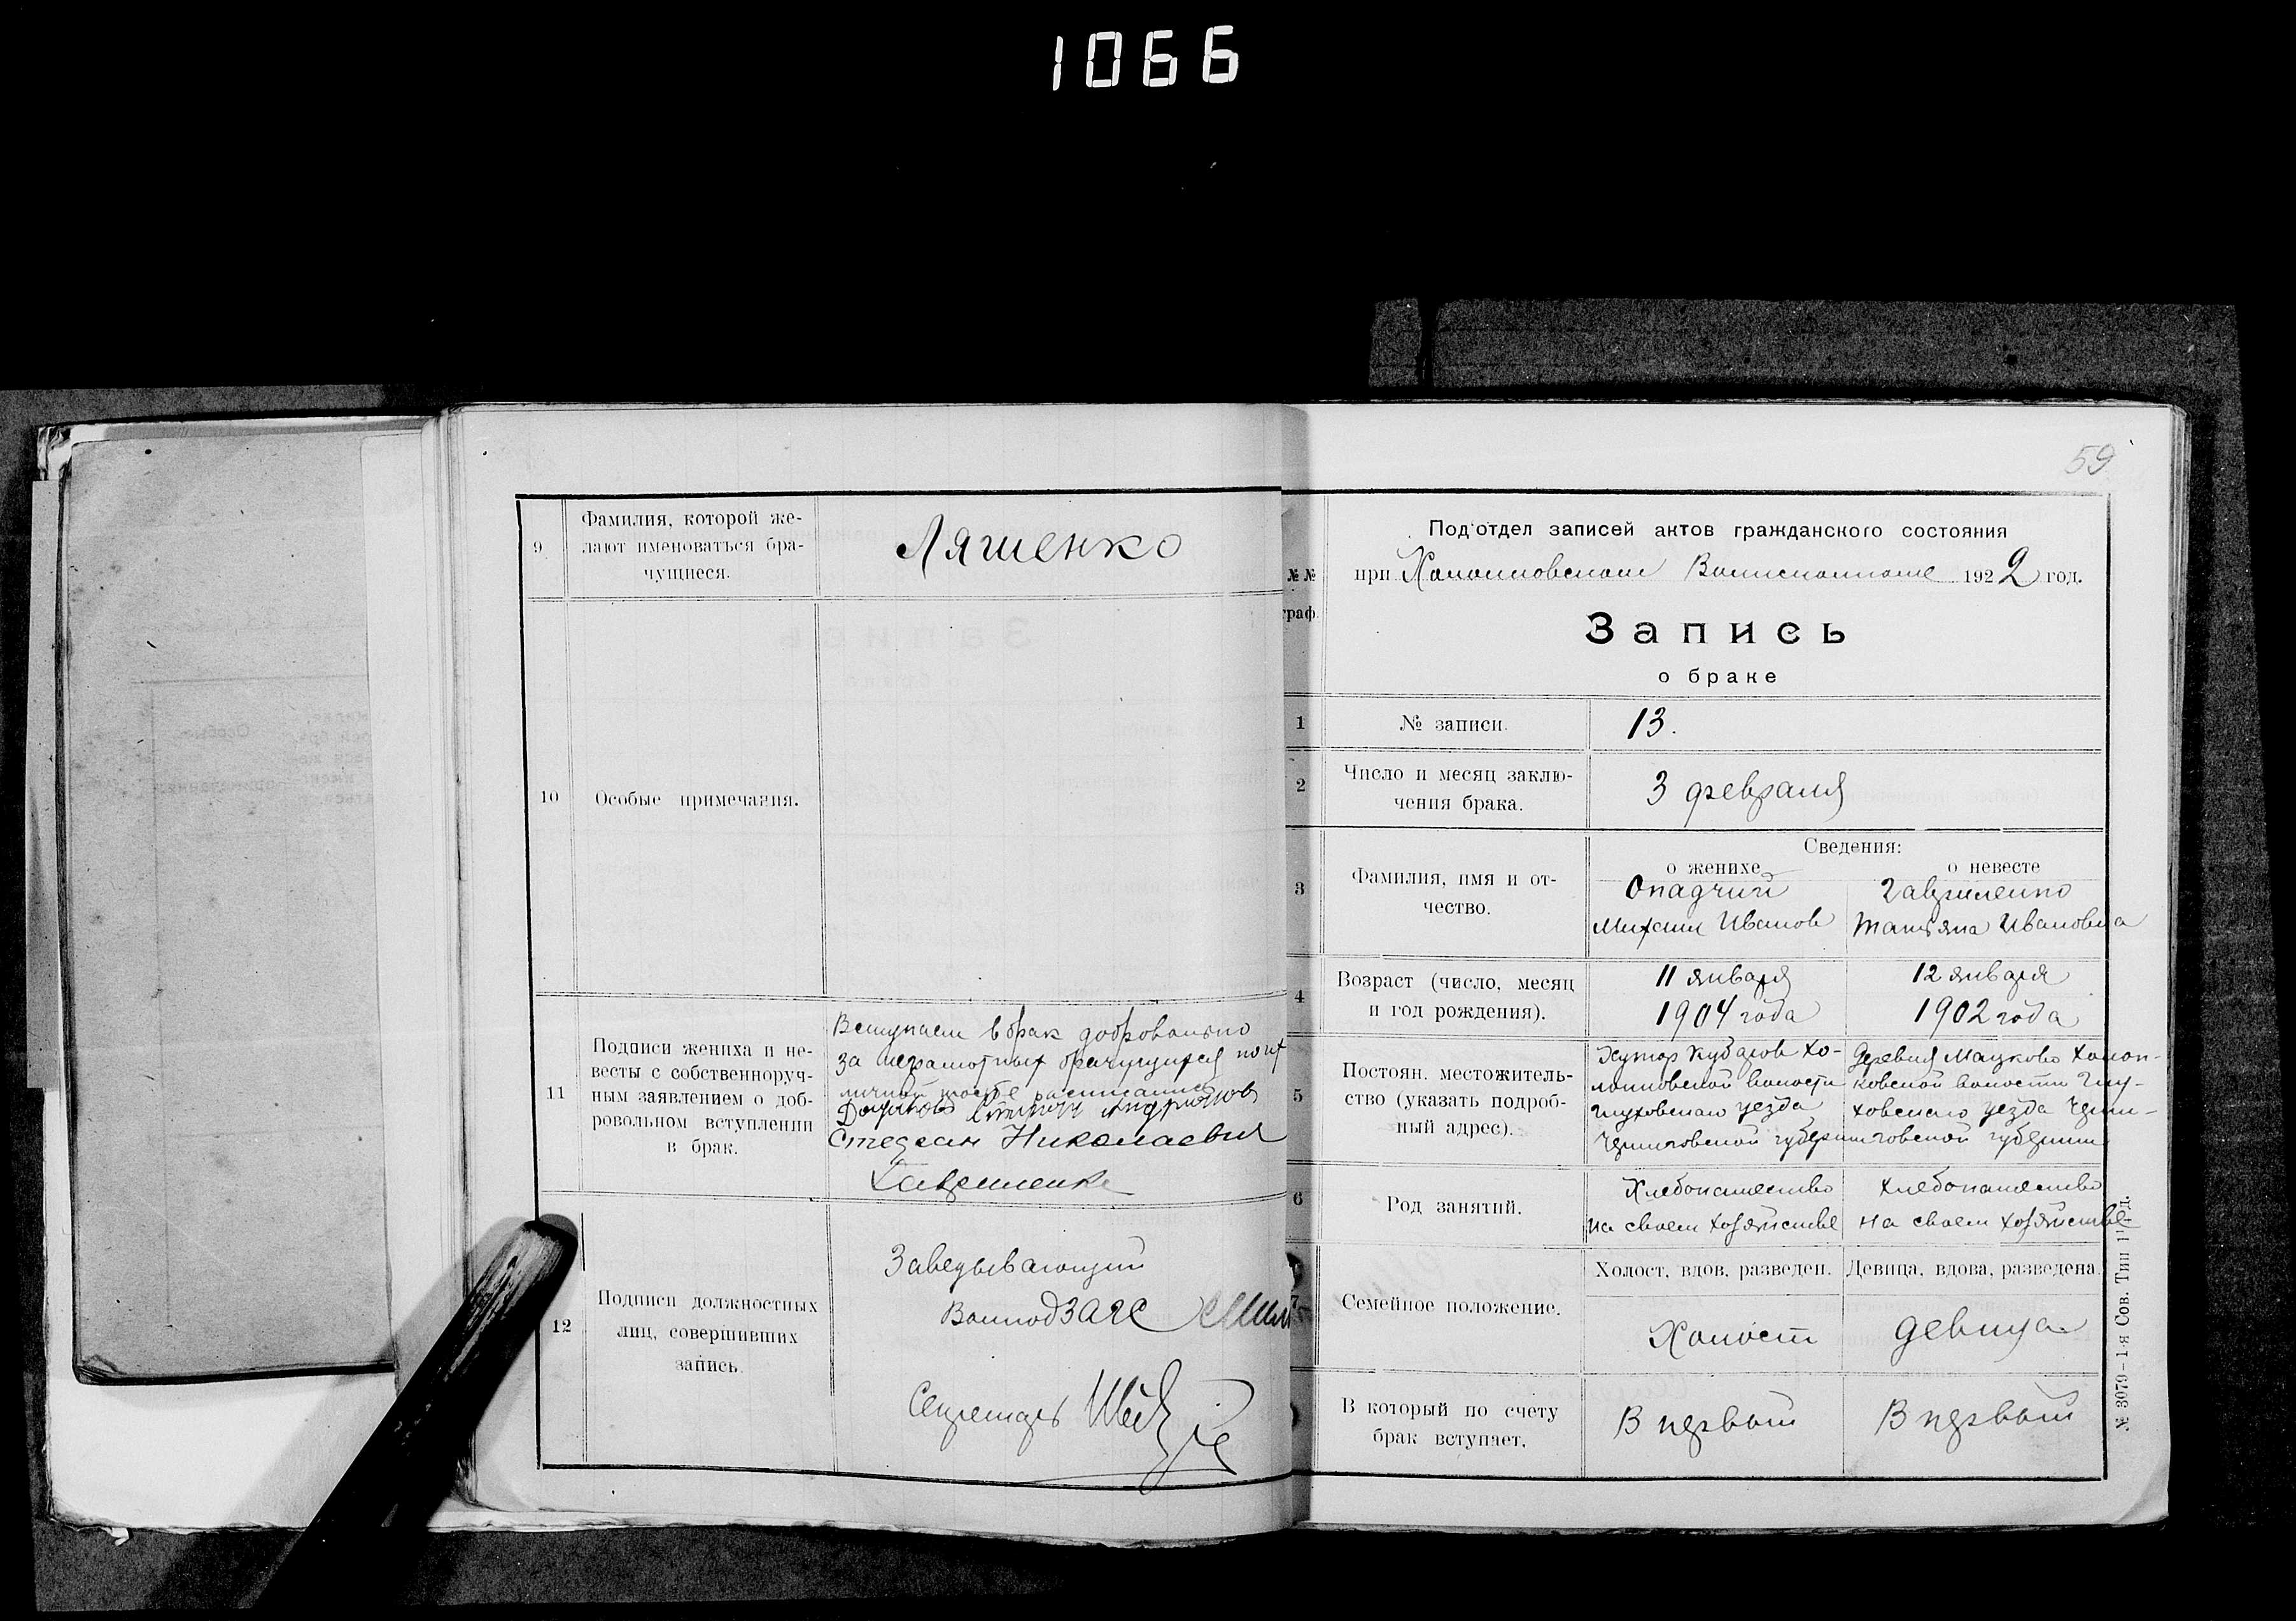 1066
9
Фамилия, которой же-
лают именоваться бра-
чущиеся.
Ляшенко
10
Особые примечания.
11
Подписи жениха и не-
весты с собственноруч-
ным заявлением о доб-
ровольном вступлении
в брак.
Вступаем в брак добровольно
за неграмотных брачущихся по их
личной прозбе расписались
Степан Николаевич
Гавриленко
12
Подписи должностных
лиц, совершивших
запись.
Заведывающий
ВолподЗАГС
Секретарь
59
№№
граф.
Подотдел записей актов гражданского состояния
при Холопковском Волисполкоме 1922 год.
Запись
о браке
1
№ записи.
13.
2
Число и месяц заклю-
чения брака.
3 февраля
3
Фамилия, имя и от-
чество.
Сведения:
о женихе
о невесте
Опадчий
Михаил Иванов
Гавриленко
Татьяна Ивановна
4
Возраст (число, месяц
и год рождения).
11 января
1904 года
12 января
1902 года
5
Постоян. местожитель-
ство (указать подроб-
ный адрес).
Хутор Кубаров Хо-
лопковской волости
Глуховского уезда
Черниговской губернии
Деревня Мацково Холоп-
ковской волости Глу-
ховского уезда Черни-
говской губернии
6
Род занятий.
Хлебопашество
на своем хозяйстве
Хлебопашество
на своем хозяйстве
7
Семейное положение.
Холост, вдов, разведен.
Девица, вдова, разведена.
Холост
девица
В который по счету
брак вступает.
В первый
В первый
№ 3079–1-я Сов. Тип